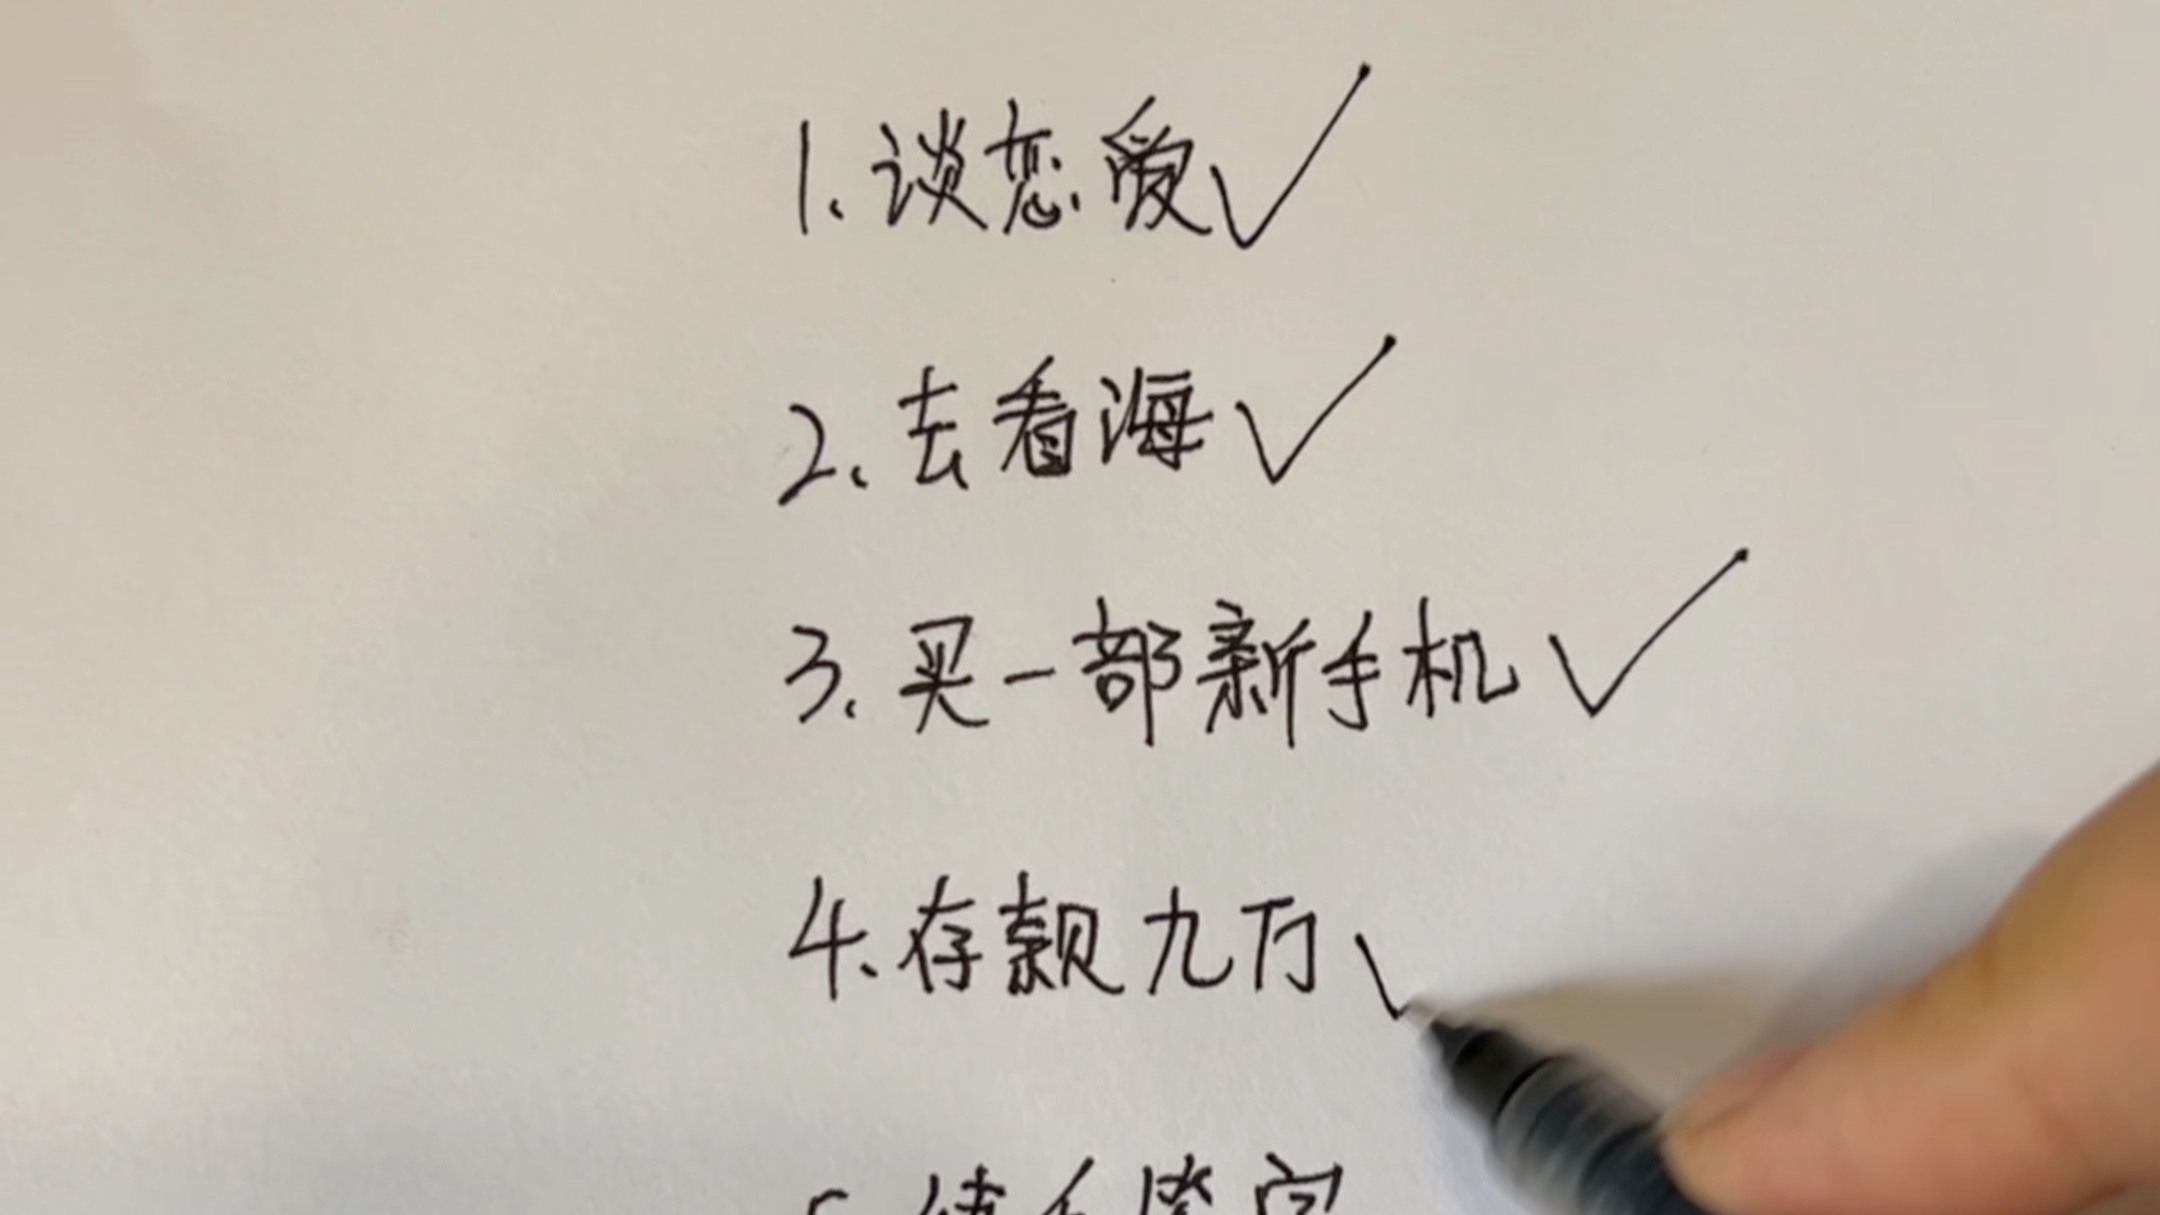 1.谈恋爱✓
2.去看海✓
3.买一部新手机✓
4.存款九万✓
5.